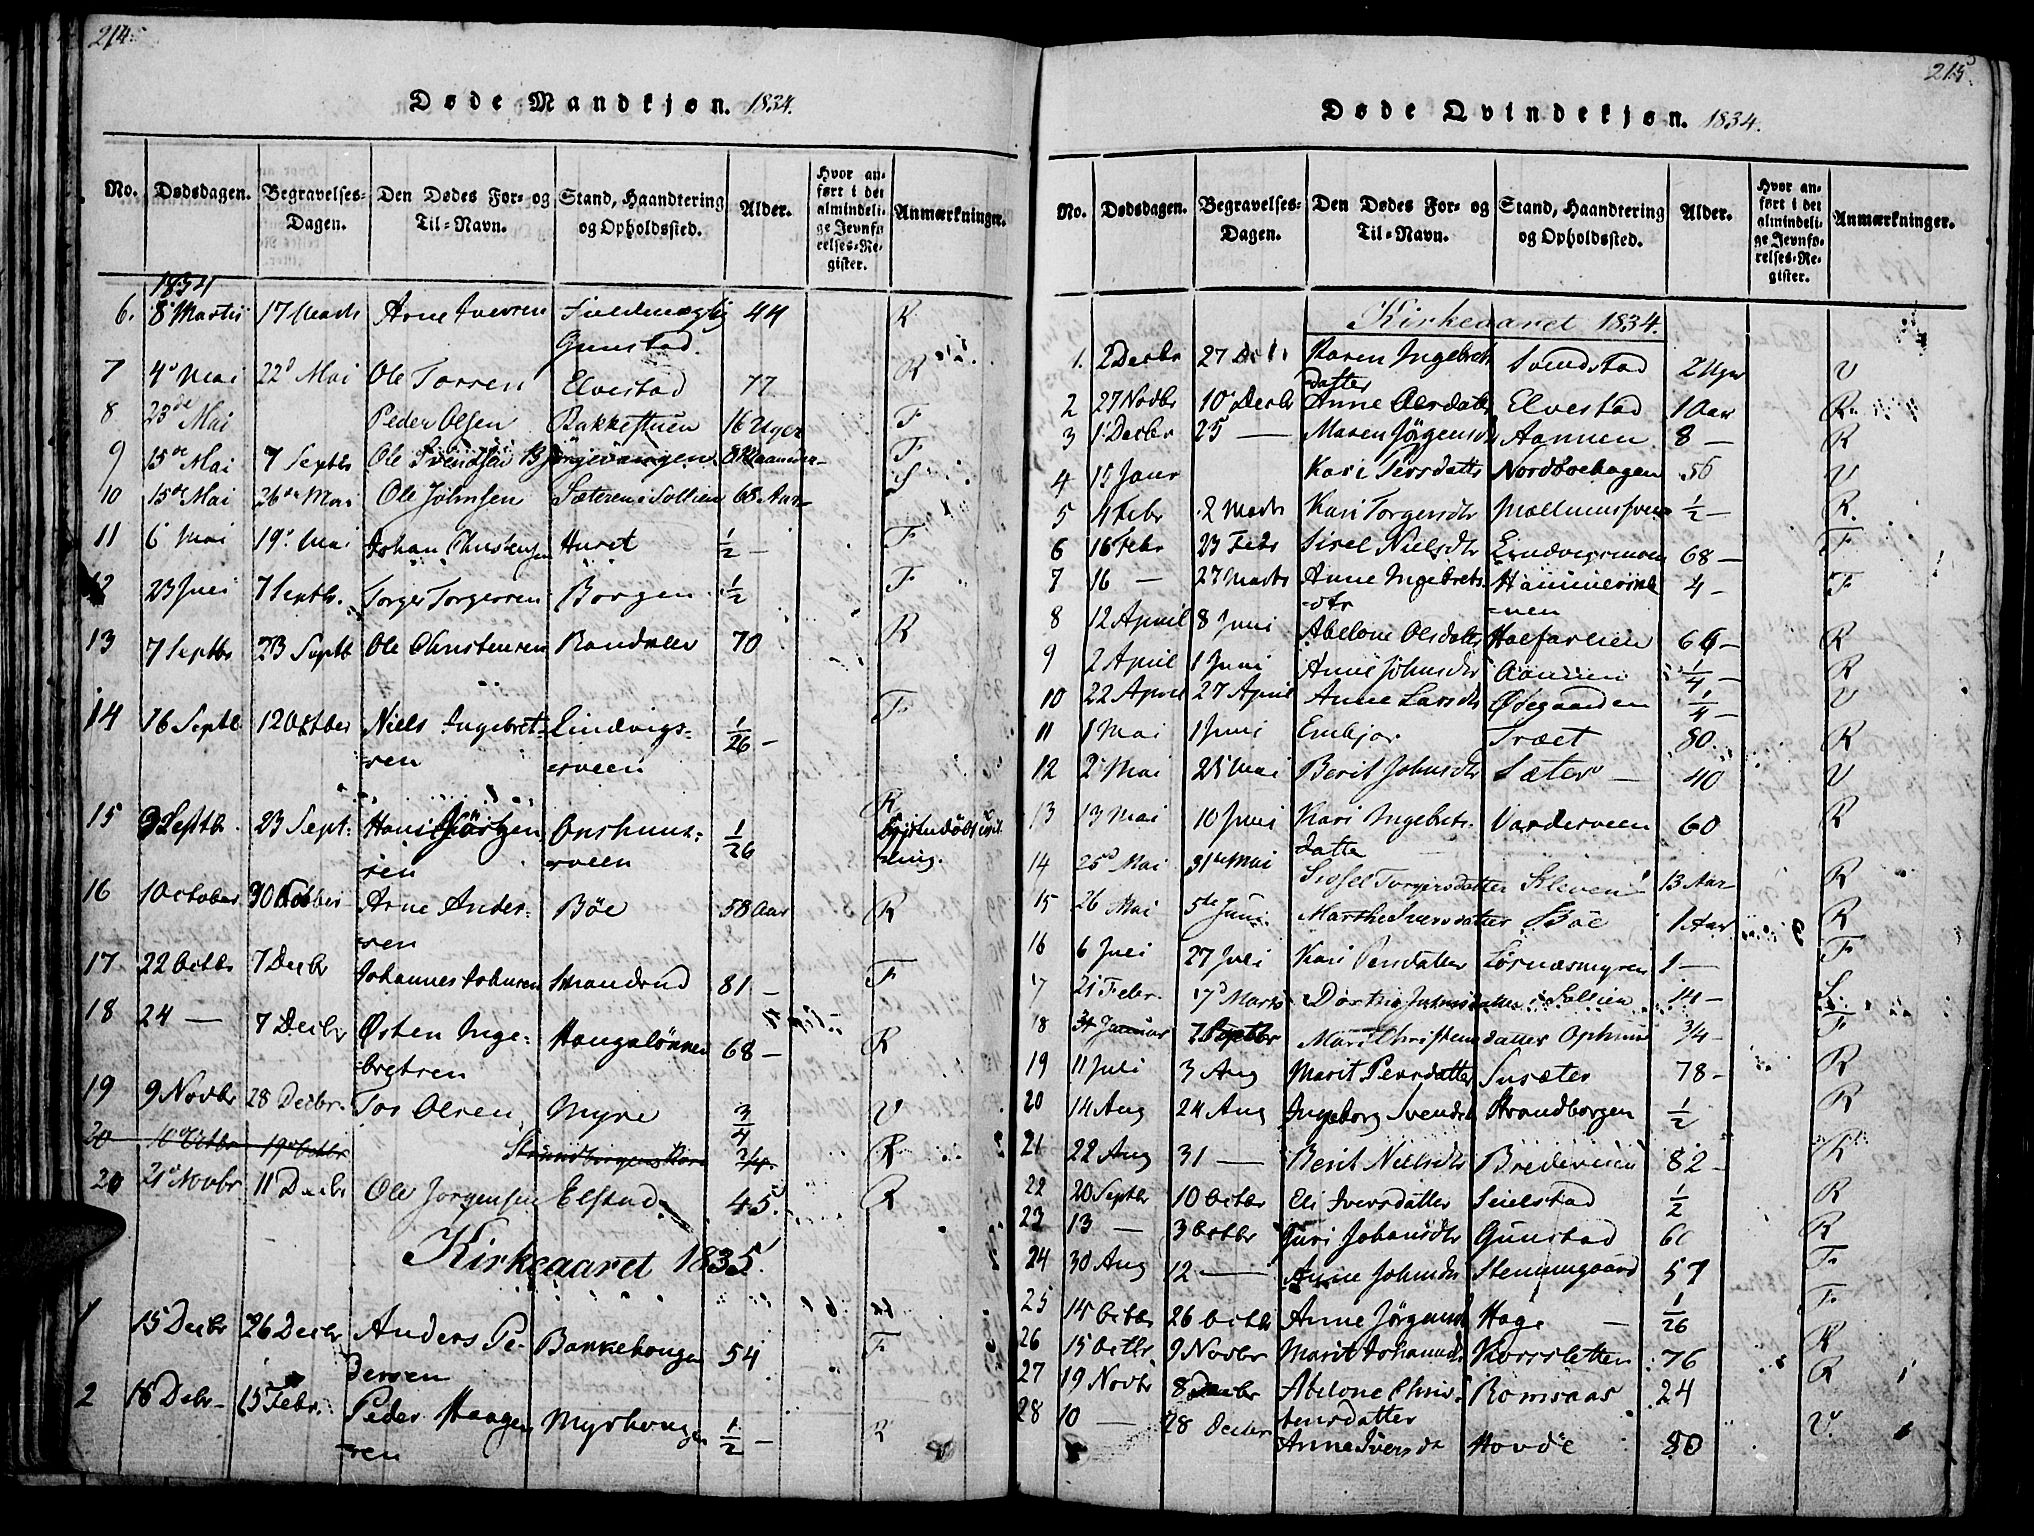 214.
Døde Mandkjøn. 1834.
No. Dødsdagen. Begravelses-Dagen. Den Dødes For- og Til-Navn. Stand, Haandtering og Opholdssted. Alder. Hvor anført i det almindelige Jevnførelses-Register. Anmærkninger.
1834
6. 8 Martii 17 Marts Arne Iversen Gunstad. 44 R
7 4 Mai 22 Mai Ole Torsen Elvestad 77 R
8 23de Mai Peder Olsen Bakkestuen 16 Uger F
9 15de Mai 7 Septbr Ole Svendsen F
10 15de Mai 26de Mai Ole Johnsen Sæteren i Sollien 68 Aar S
11 6 Mai 19 Mai Johan Christensen 1/2 — F
12 23 Juli 7 Septbr. Torger Torgersen Borgen 1/2 F
13 7 Septbr 23 Septb Ole Christensen Randalen 70 R
14 16 Septb 12 Octber Niels Ingebret-
sen Lindvigs-
sveen 1/26 — F
15 9 Septbr. 23 Sept. Hans
sen
sveen 1/26 R
16 1 October Arne Ander-
sen Bøe 58 Aar R
17 22 Octbr 7 Decbr Johannes Johnsen Strandrud 81 — F
18 24 — 7 Decbr Østen Inge-
bretsen Haugslønnen 68 — R
19 9 Novbr 28 Decbr. Tor Olsen Myre 3/4 V
20 10 Octbr 19 Octbr 3/4 R
20 21 Novbr 11 Decbr Ole Jorgensen Elstad. 45. R
Kirkeaaret 1835.
1 15 Decbr 26 Decbr Anders Pe-
dersen Bakkehougen 54 F
2 18 Debr 15 Febr. Peder Haagen-
sen Myrhougen 1/2 — R
215.
Døde Qvindekjøn. 1834.
No. Dødsdagen. Begravelses-Dagen. Den Dødes For- og Til-Navn. Stand, Haandtering og Opholdssted. Alder. Hvor anført i det almindelige Jevnførelses-Register. Anmærkninger.
Kirkeaaret 1834.
1. 2 Decbr 27 Dcbr Karen Ingebrets
datter Svendstad 2 Uger V
2 27 Novbr 10 Decbr Anne Olsdatter Elvestad 1 Aar R
3 1 Decbr 25 — Maren Jørgensdtr Aannen 8 — R
4 15 Janr Kari Persdatter Nordboehagen 56 V
5 4 Febr 2 Marts Kari Torgersdtr 1/2 — R.
6 16 Febr 23 Febr Sisel Nielsdtr Lindvigsmoen 68 — F
7 16 — 27 Marts Anne Ingebrets
dtr 4 — F
8 12 April 8 Juni Abelone Olsdatter Halfarlien 66 — R
9 2 April 1 Juni Anne Johnsdtr 1/4 — R
10 22 April 27 April Anne Larsdtr Ødegaarden 1/4 — V
11 1 Mai 1 Juni Embjør Træet 80. R
12 2 Mai 25 Mai Berit Johnsdtr Sæter — 40 V
13 13 Mai 10 Juni Kari Ingebrets-
datter Varderveen 60 R
14 25d Mai 31te Mai Sidsel Torgersdatter Kleven 13 Aar R
15 26 Mai 5te Juni Marthe Iversdatter Bøe 1 Aar R
16 6 Juli 27 Juli Kari Persdatter Losnæsmyren 1 — F
17 21 Febr. 7d Marts Dorthe Johnsdatter i Sollien 14 — S.
18 31 Januar 7 Septbr Mari Christensdatter Ophuus 3/4 — F
19 11 Juli 3 Aug Marit Persdatter Susæter 78 — R
20 14 Aug 24 Aug Ingeborg Svends Strandborgen 1/2 R
21 22 Aug 31 — Berit Nielsdtr Bredeveien 82 — R
22 20 Septbr 10 Octbr Eli Iversdatter Seielstad 1/2 R
23 13 — 3 Octbr Guri Johansdtr Gunstad 60 R
24 30 Aug 12 — Anne Johnsdtr Stenumgaard 57 F
25 14 Octbr 26 Octbr Anne Jørgensd Hage — 1/26 F
26 15 Octbr 9 Novbr Marit Johannsd Korssletten 76 R
27 19 Novbr 8 Decbr Abelone Chris-
tensdatter Romsaas 24 R
28 10 — 28 Decbr Anne Iversdt Hovde 80 V.